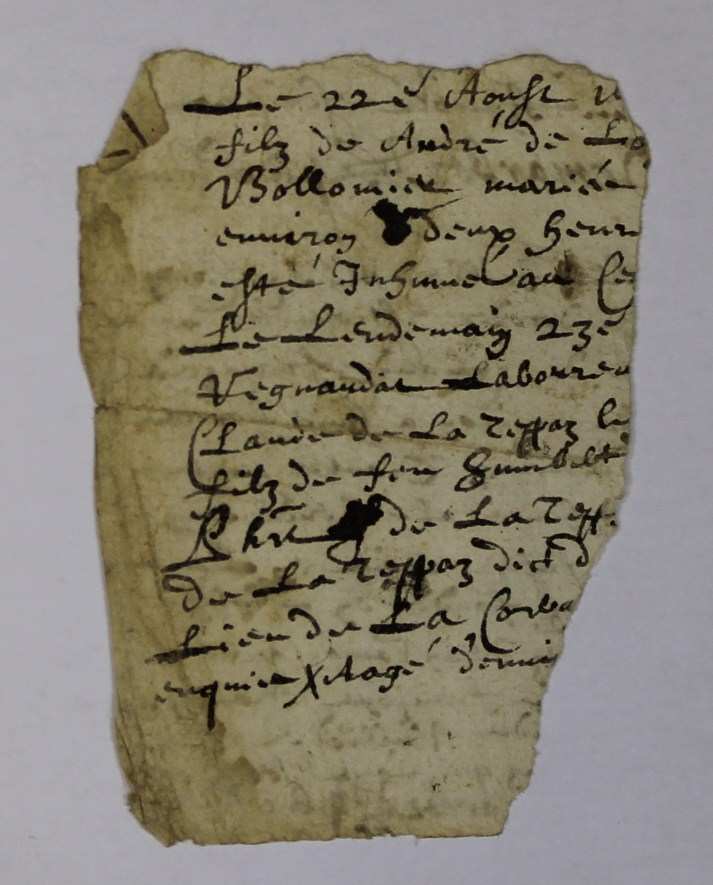 Le 22e Aoust
filz de André de La
Bollomier mariée
environ deux heur
esté Inhumé au Ce
Le Lendemain 23e
Regnaudat Laboureu
Claude de La Teppaz
filz de feu Humbelt
de La Tepp
de La Teppaz dict d
Lieu de La Corva
enquier Aagé d'envi